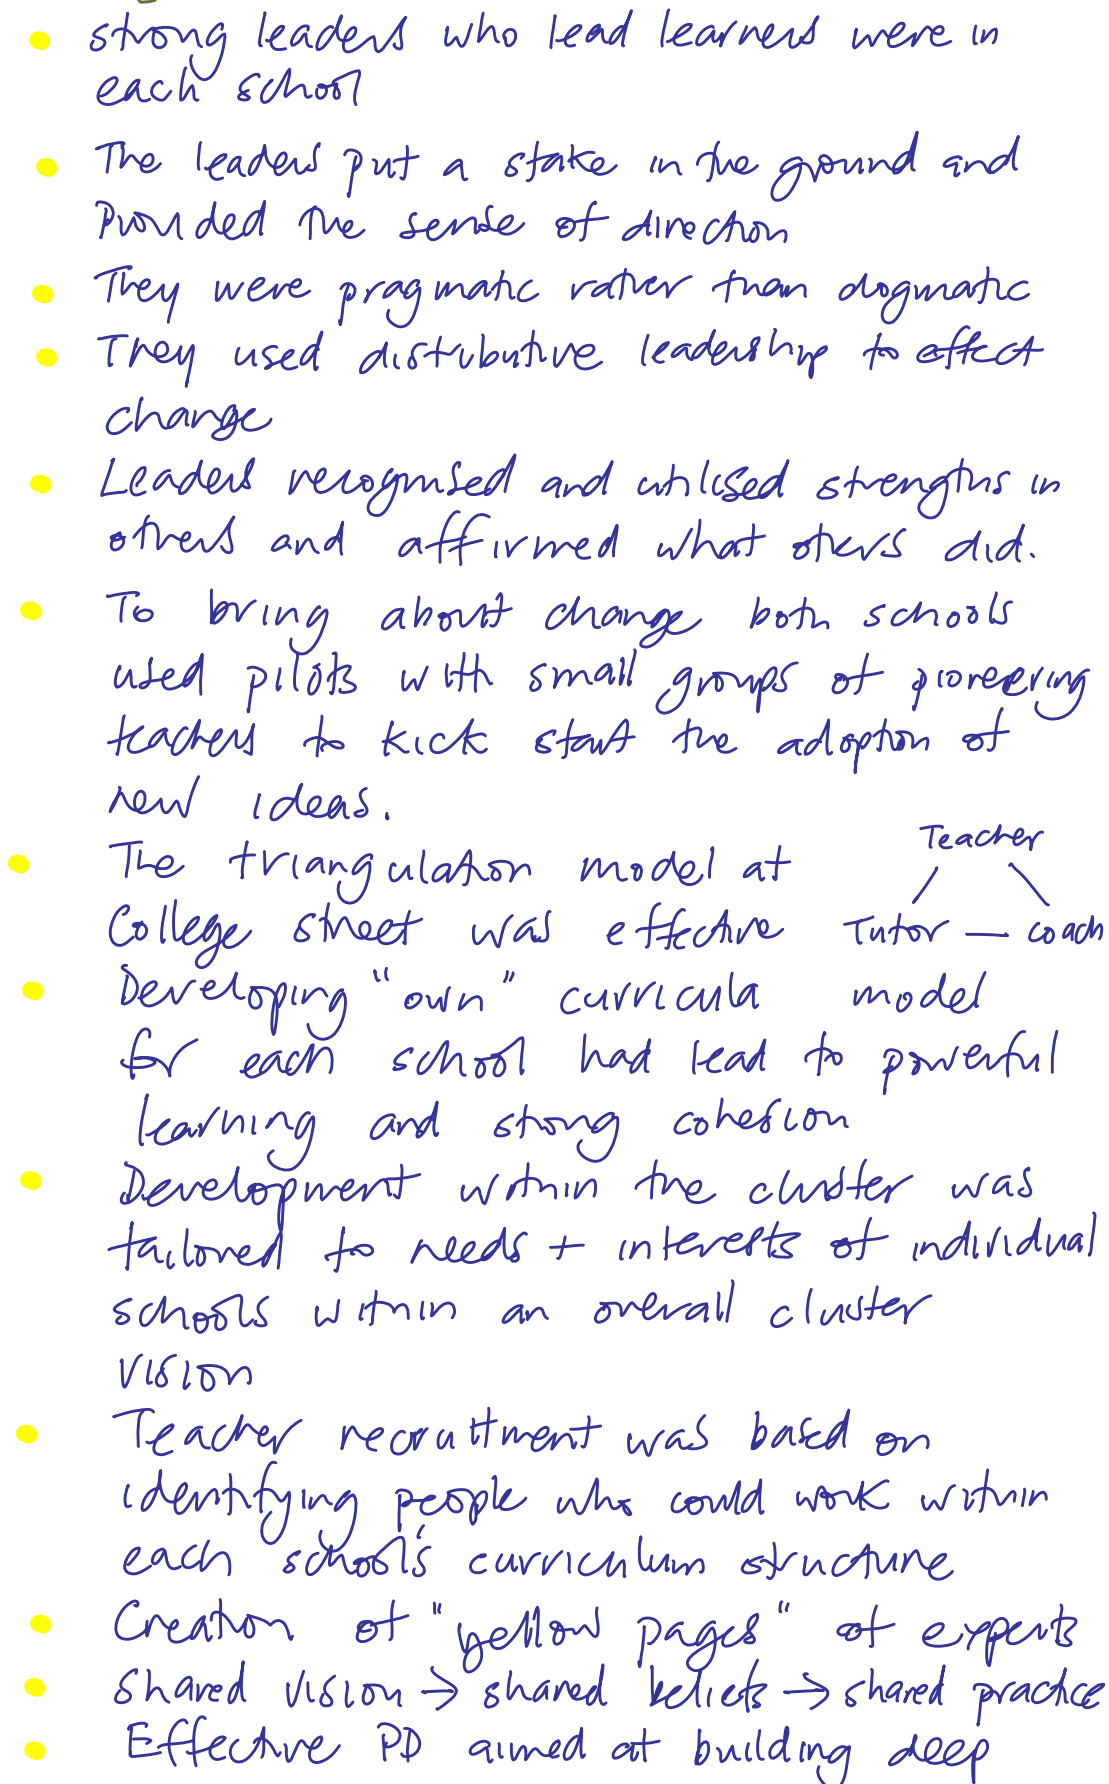 • strong leaders who lead learners were in
each school
• The leaders put a stake in the ground and
Provided the sense of direction
• They were pragmatic rather than dogmatic
• They used distributive leadership to effect
change
• Leaders recognised and utilised strengths in
others and affirmed what others did.
• To bring about change both schools
used pilots with small groups of pioneering
teachers to kick start the adoption of
new ideas.
Teacher
• The triangulation model at
College street was effective Tutor — coach
• Developing "own" curricula model
for each school had lead to powerful
learning and strong cohesion
• Development within the cluster was
tailored to needs + interests of individual
schools within an overall cluster
vision
• Teacher recruitment was based on
identifying people who could work within
each school's curriculum structure
• Creation of "yellow pages" of experts
• shared vision → shared beliefs → shared practice
• Effective PD aimed at building deep